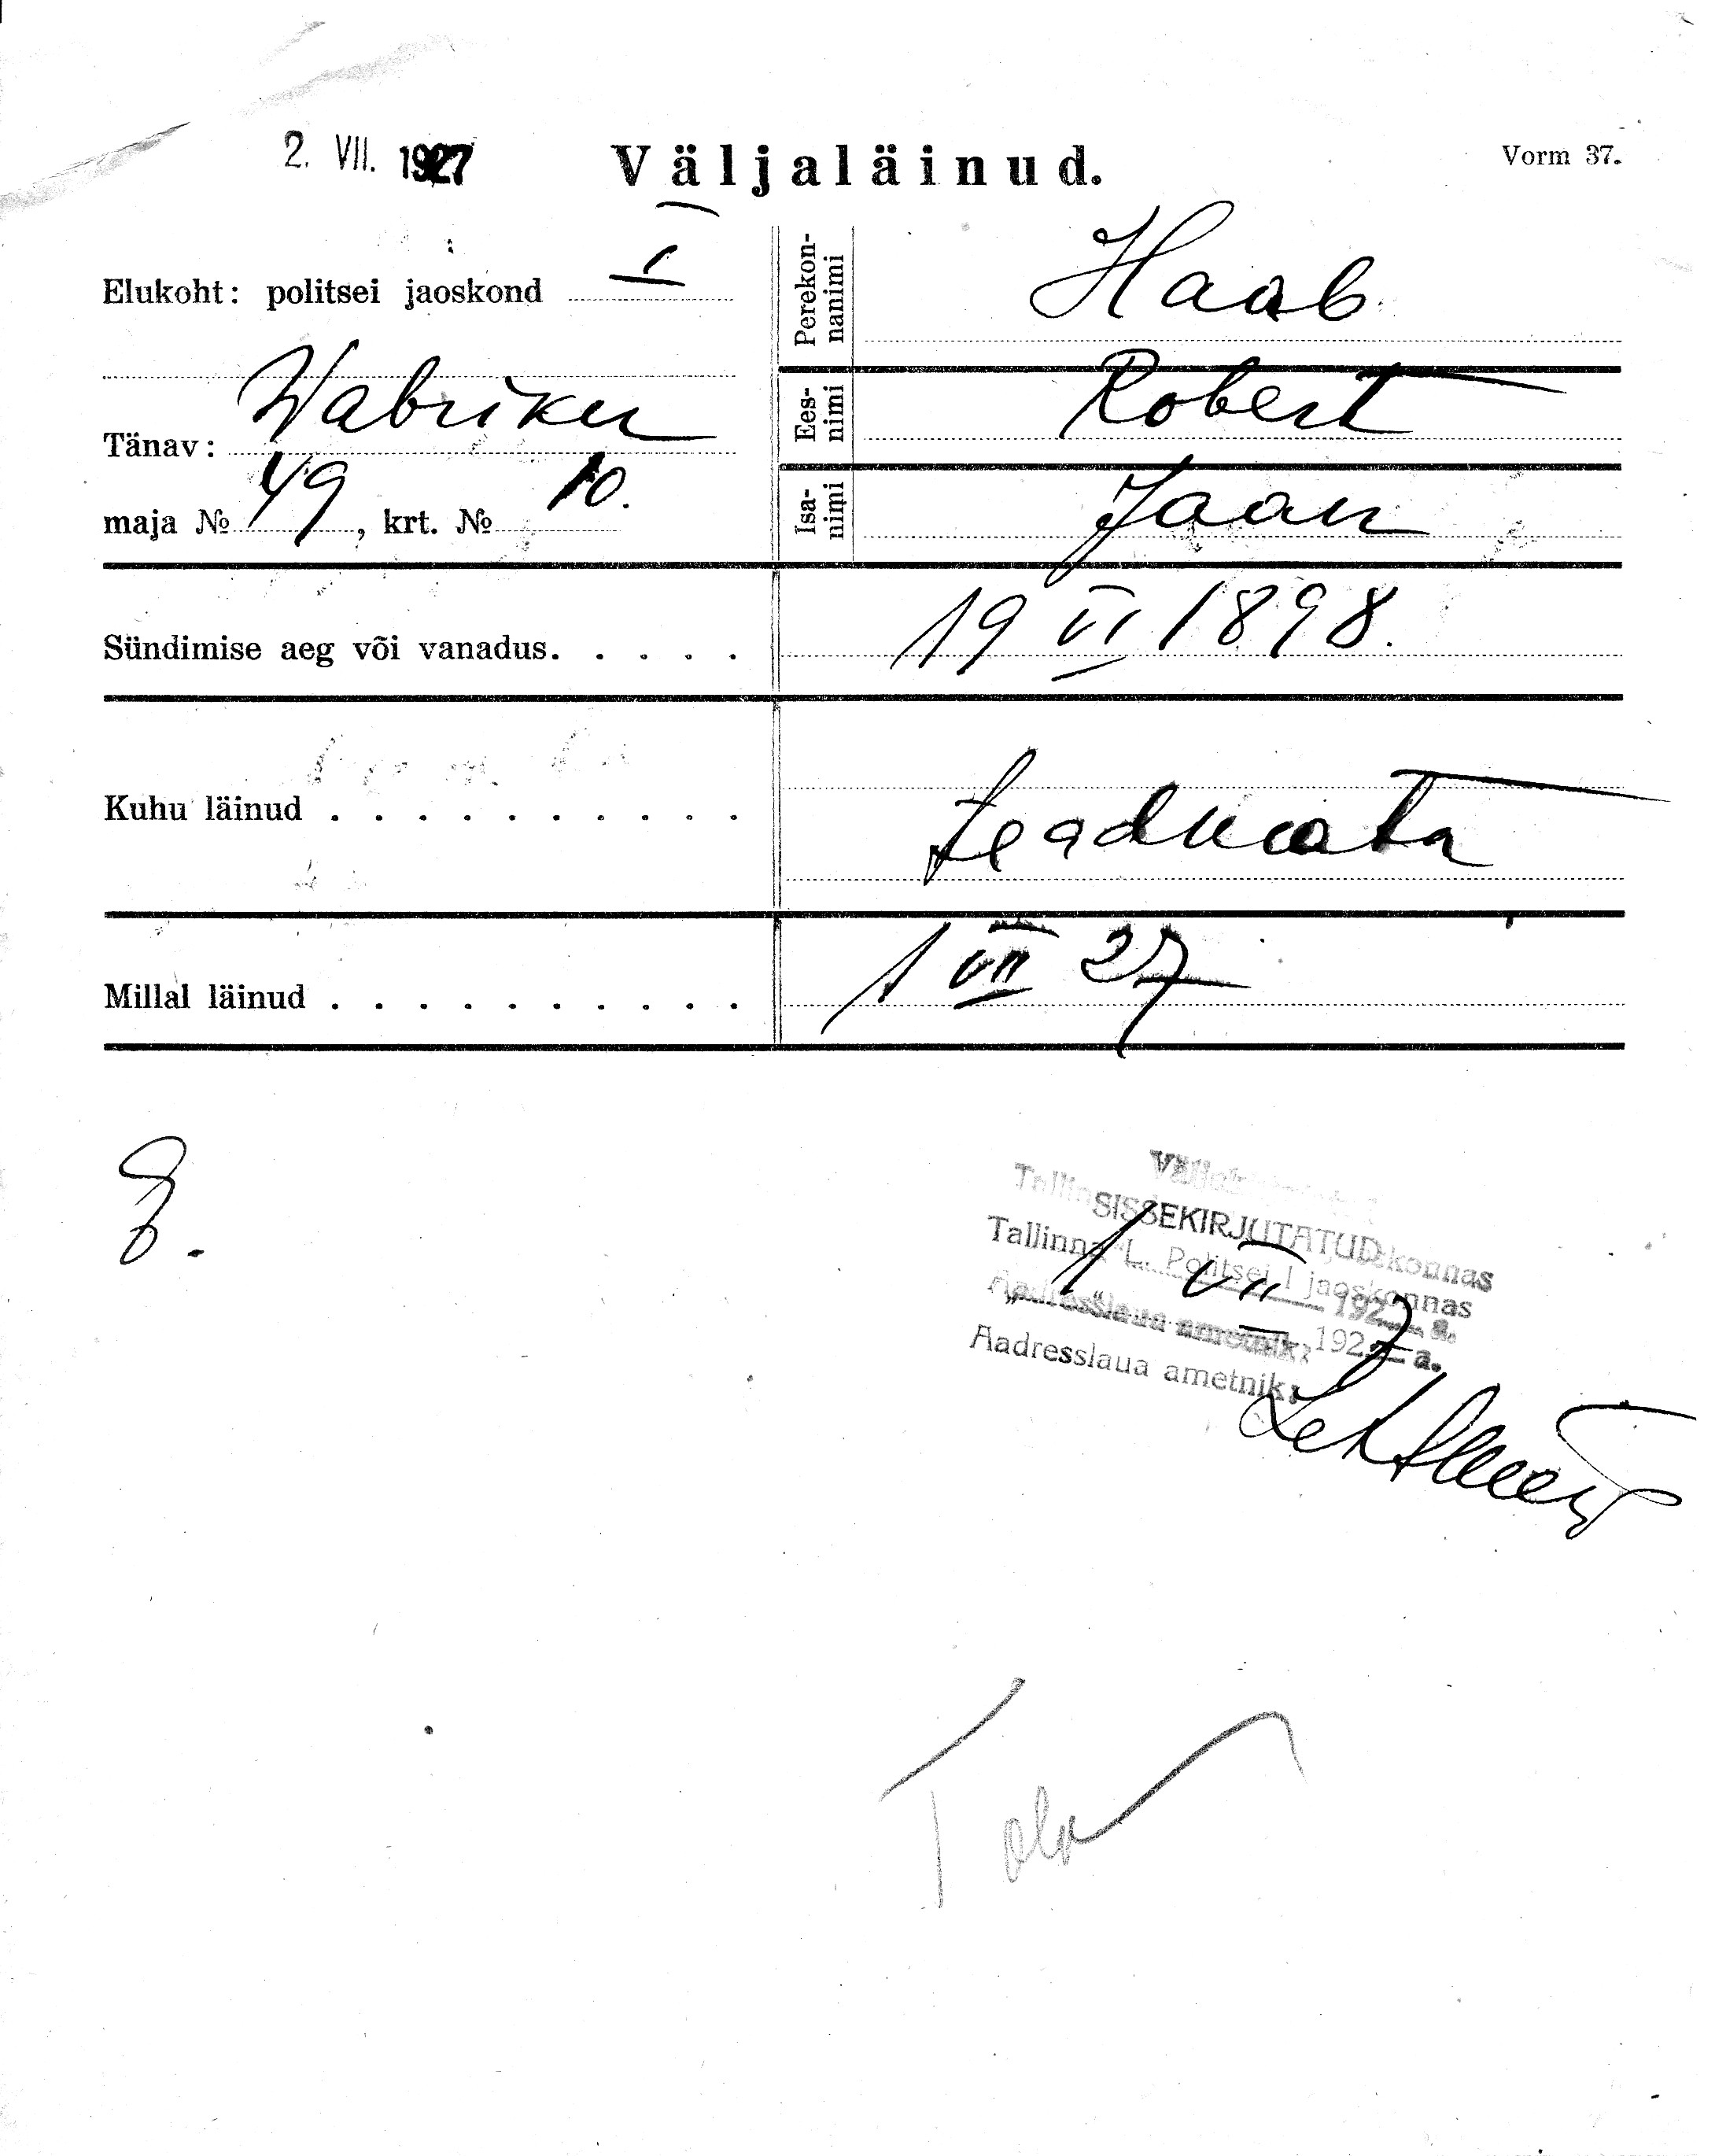 2. VII. 1927
Väljaläinud.
Vorm 37.
Elukoht: politsei jaoskond I
Tänav: Wabriku
maja № 49, krt. № 10.
Perekon-
nanimi
Haab
Ees-
nimi
Robert
Isa-
nimi
Jaan
Sündimise aeg või vanadus. . . . . 19 VI 1898.
Kuhu läinud . . . . . . . . . . teadmata
Millal läinud . . . . . . . . . . 1 VII 27
SISSEKIRJUTATUD
Tallinna L. Politsei I jaoskonnas
1 VII 1927 a.
Aadresslaua ametnik: